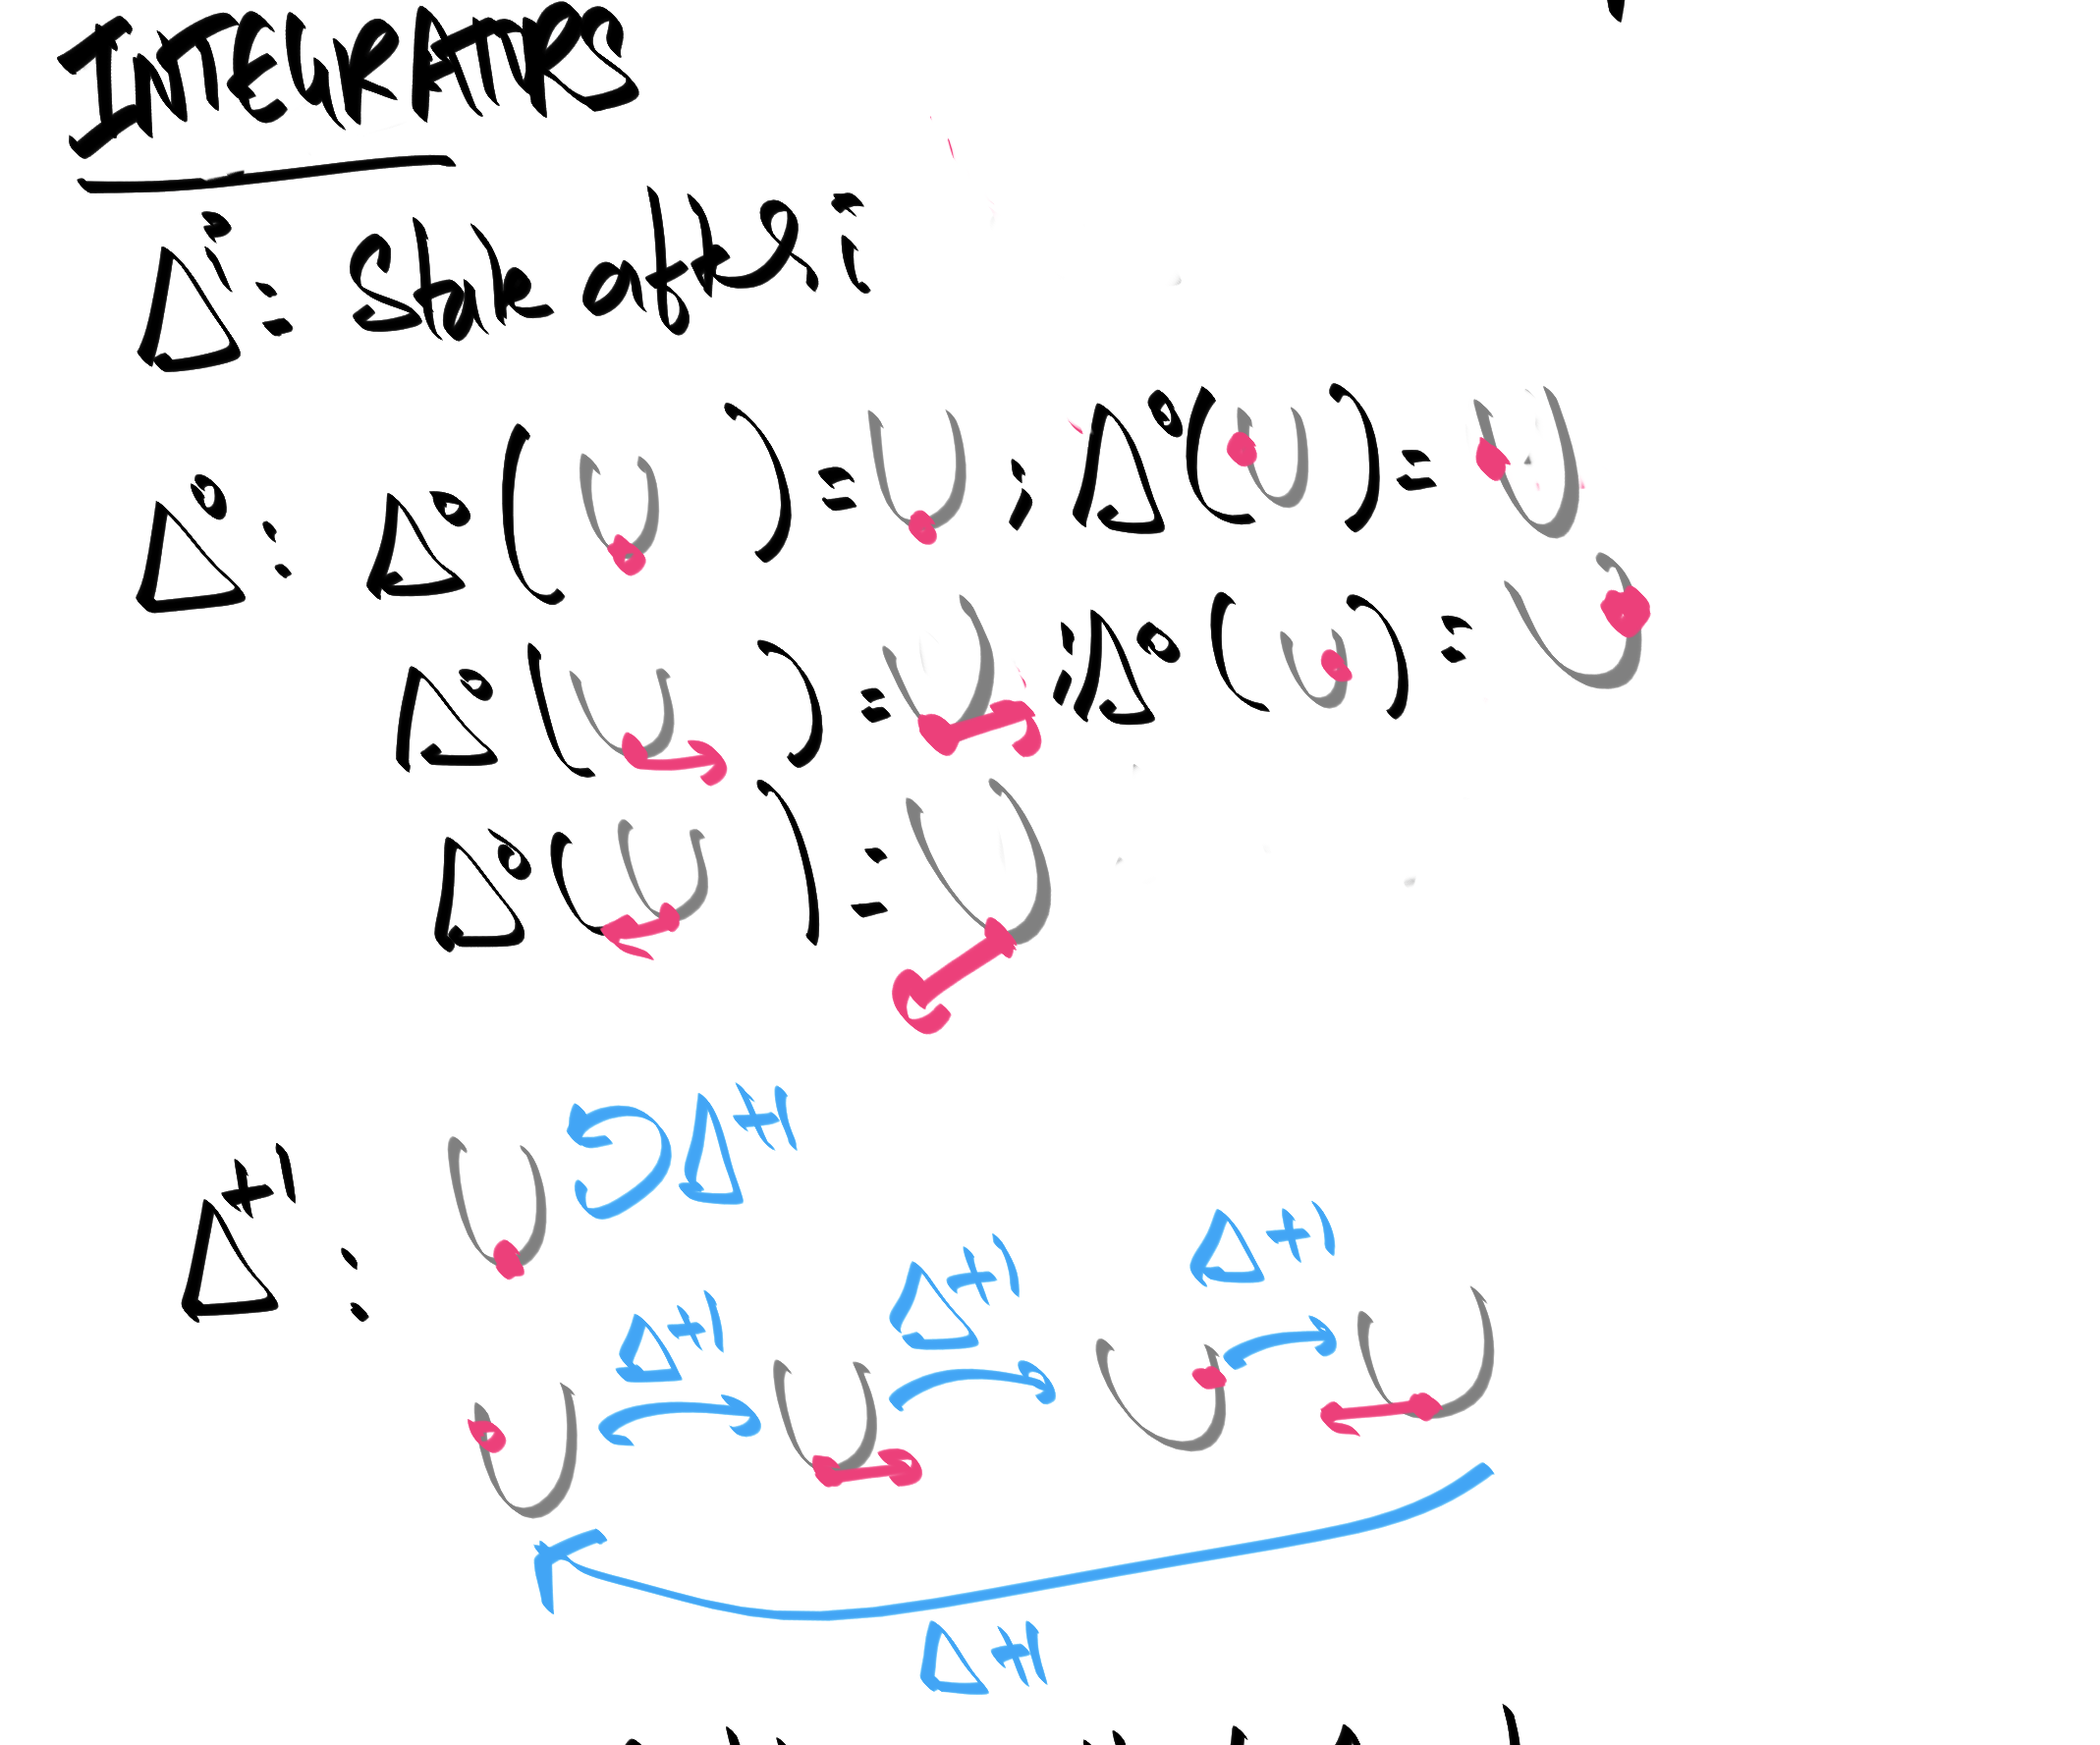 INTEGRATORS
Δⁱ: State after i
Δ⁰: Δ⁰( ) = ; Δ⁰( ) =
Δ⁰( ) = ; Δ⁰( ) =
Δ⁰( ) =
Δ⁺¹
Δ⁺¹:
Δ⁺¹ Δ⁺¹ Δ⁺¹
Δ⁺¹